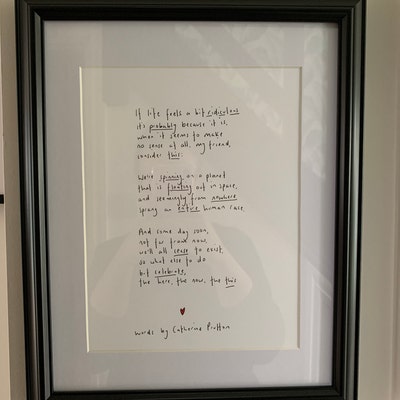 If life feels a bit ridiculous
it's probably because it is.
when it seems to make
no sense at all, my friend,
consider this:
We're spinning on a planet
that is floating out in space,
and seemingly from nowhere
sprang an entire human race
And some day soon,
not far from now,
we'll all cease to exist.
so what else to do
but celebrate,
the here, the now, the this
words by Catherine Prutton